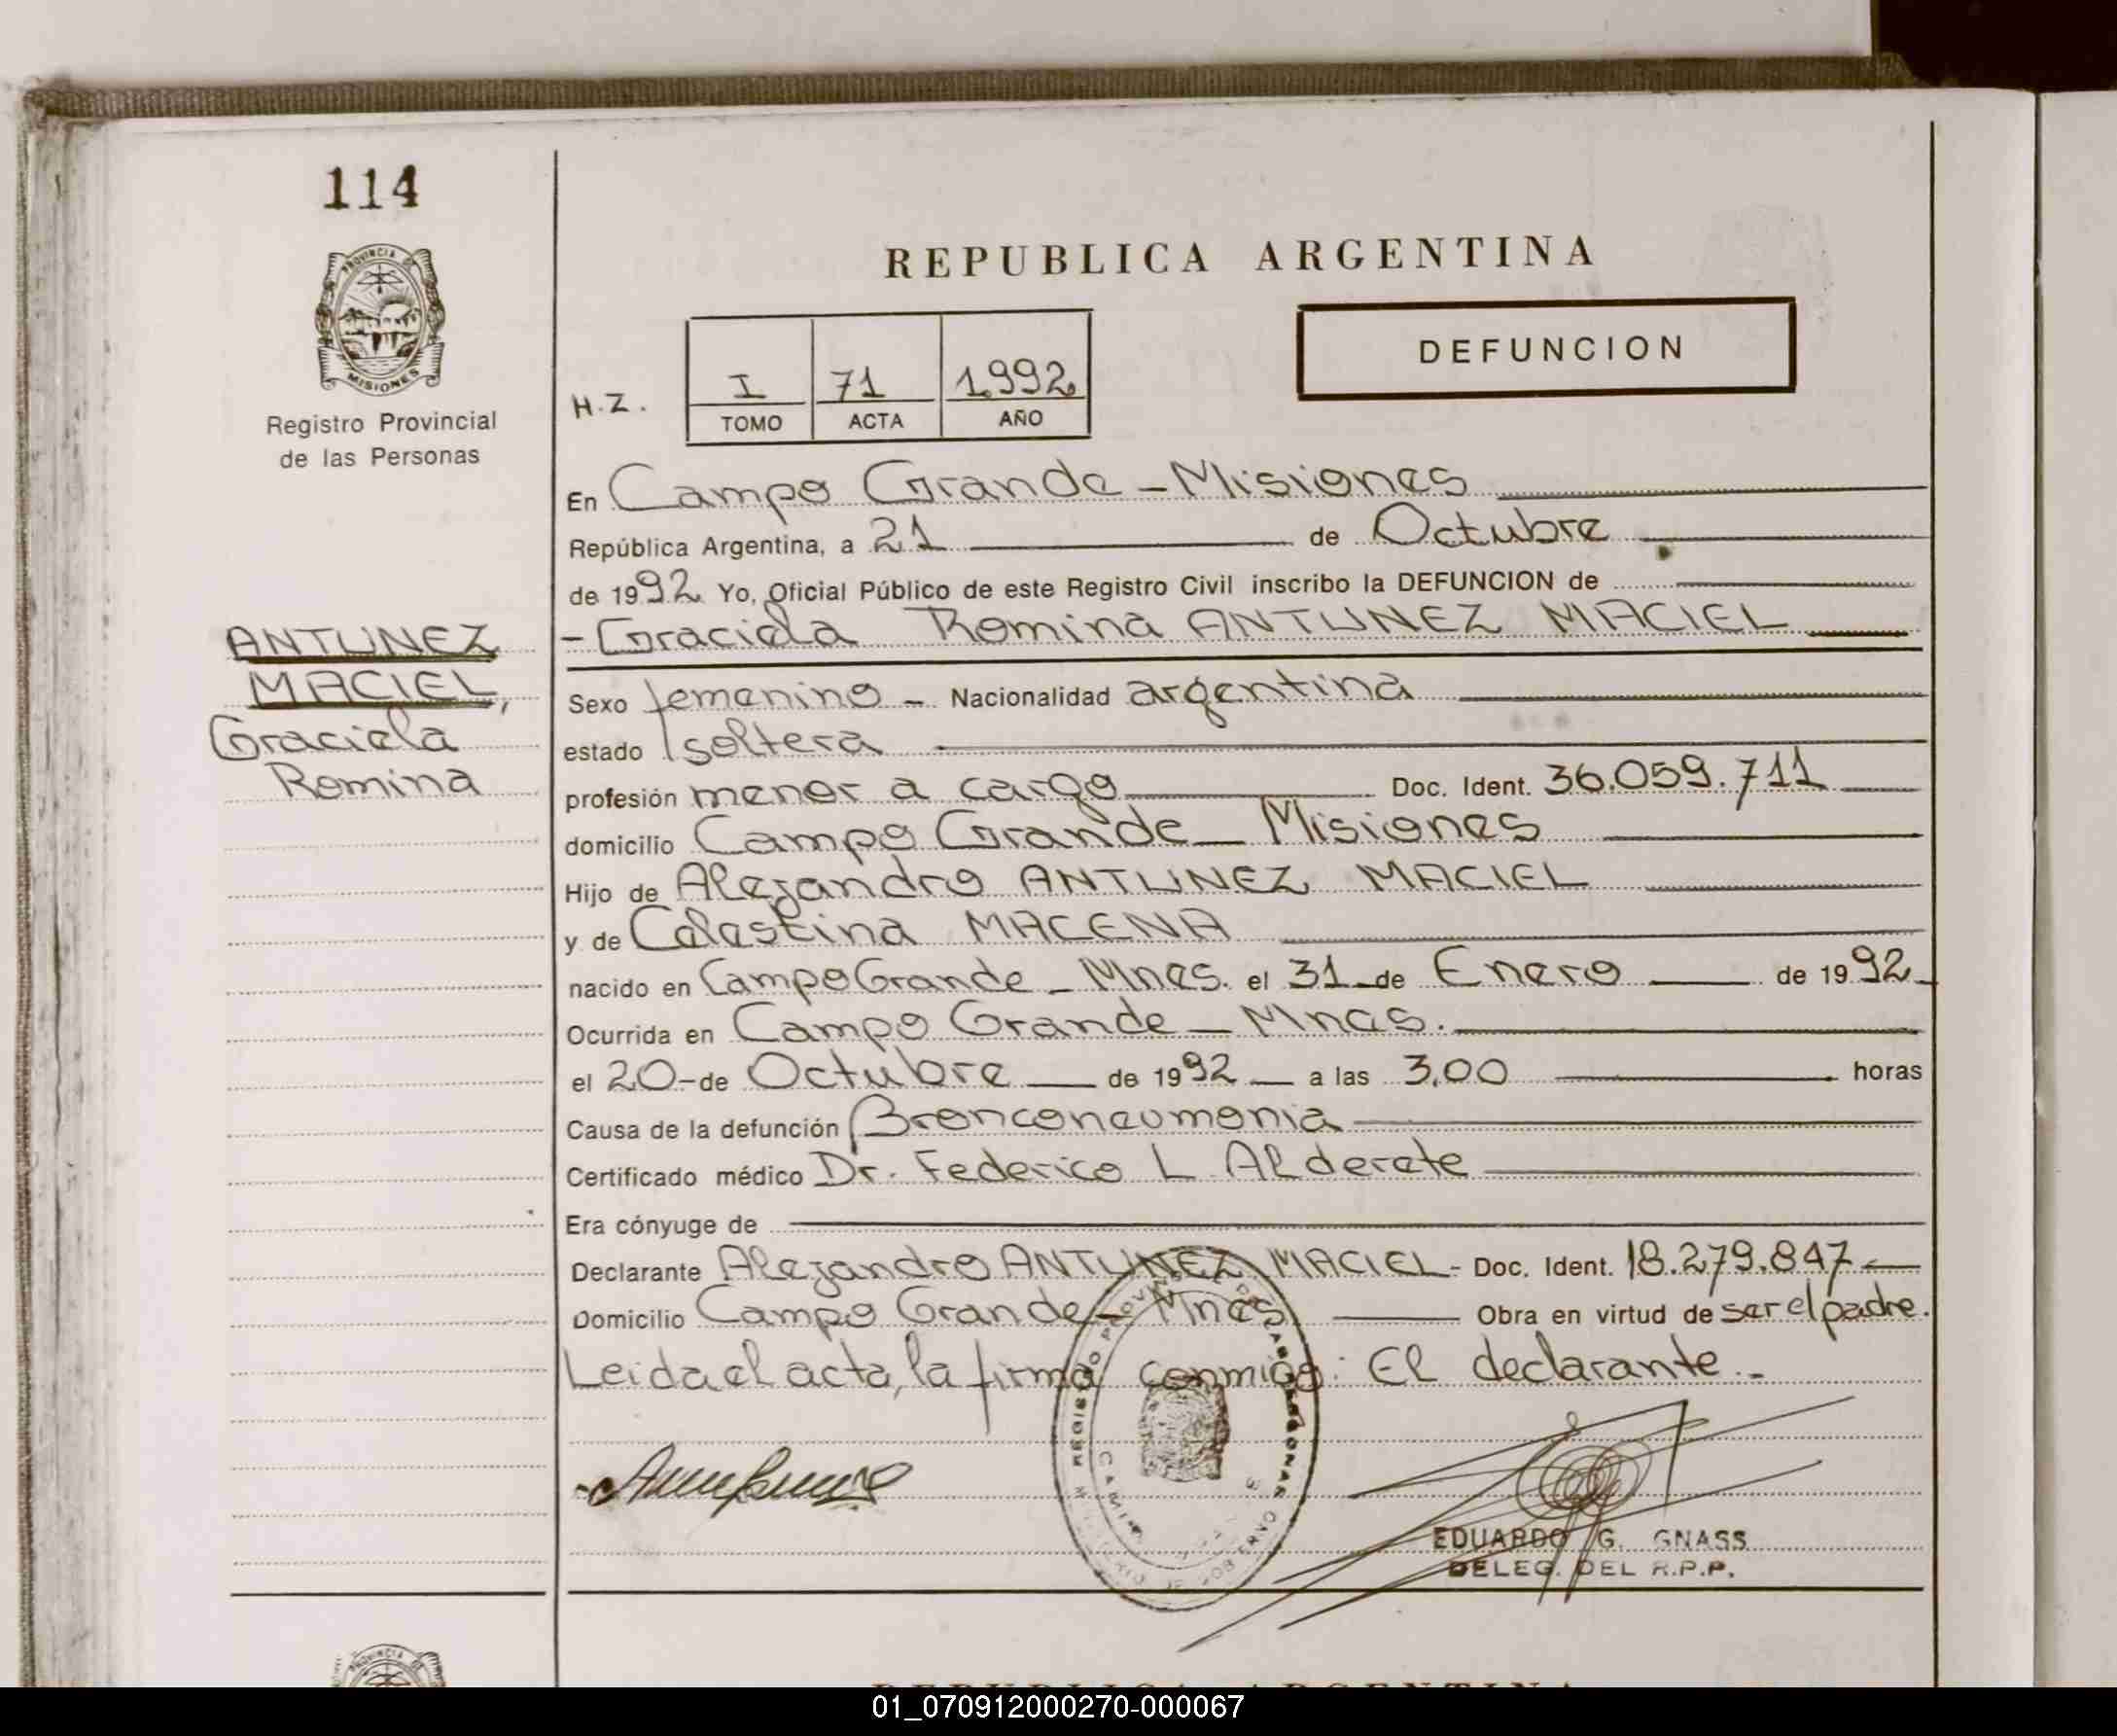 114
PROVINCIA DE
MISIONES
Registro Provincial
de las Personas
ANTUNEZ
MACIEL,
Graciela
Romina
REPUBLICA ARGENTINA
DEFUNCION
H.Z.
I 71 1992
TOMO ACTA AÑO
En Campo Grande - Misiones
República Argentina, a 21 de Octubre
de 1992 Yo, Oficial Público de este Registro Civil inscribo la DEFUNCION de
- Graciela Romina ANTUNEZ MACIEL
Sexo femenino - Nacionalidad argentina
estado soltera
profesión menor a cargo Doc. Ident. 36.059.711
domicilio Campo Grande - Misiones
Hijo de Alejandro ANTUNEZ MACIEL
y de Celestina MACENA
nacido en Campo Grande - Mnes. el 31 de Enero de 1992
Ocurrida en Campo Grande - Mnes.
el 20 - de Octubre de 1992 a las 3,00 horas
Causa de la defunción Bronconeumonia
Certificado médico Dr. Federico L. Alderete
Era cónyuge de
Declarante Alejandro ANTUNEZ MACIEL - Doc. Ident. 18.279.847
Domicilio Campo Grande - Mnes Obra en virtud de ser el padre.
Leida el acta, la firma conmigo: El declarante.-
EDUARDO G. GNASS
DELEG. DEL R.P.P.
REPUBLICA ARGENTINA
01_070912000270-000067